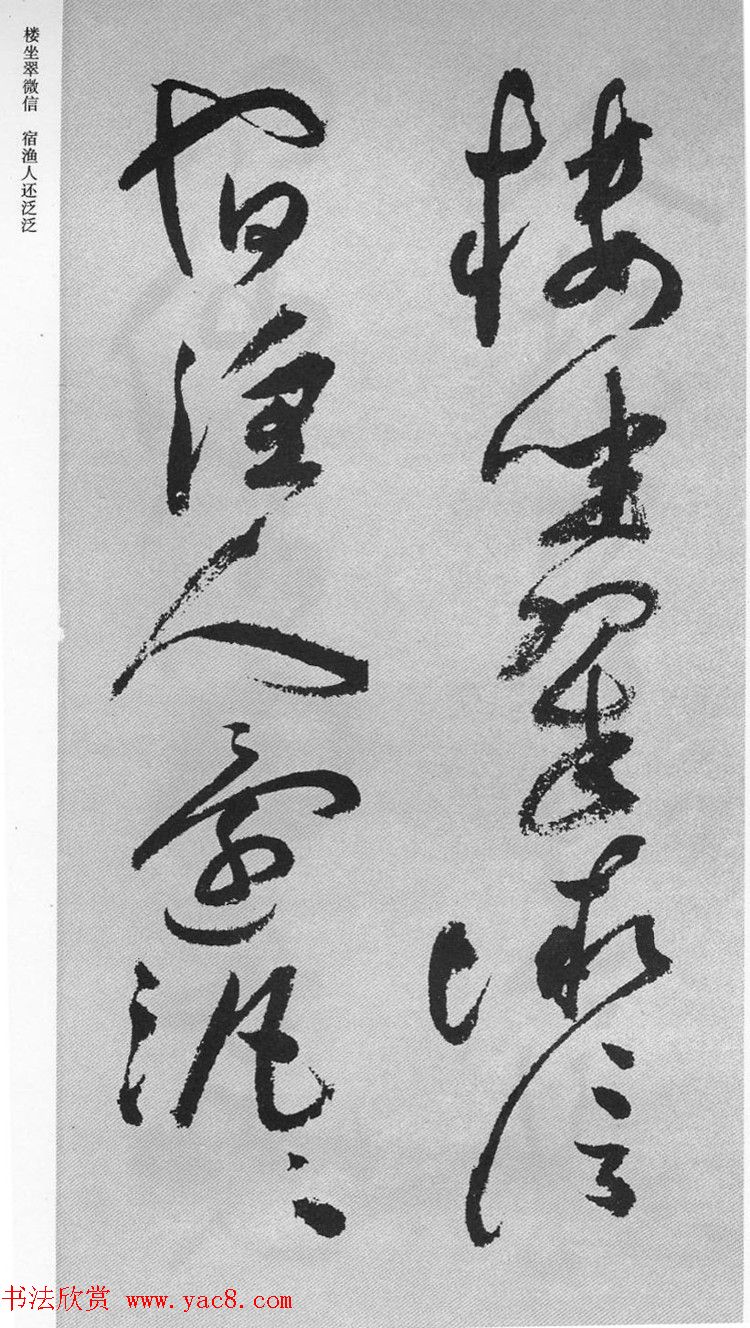 樓坐翠微信
宿漁人還泛〻
楼坐翠微信 宿渔人还泛泛
书法欣赏 www.yac8.com